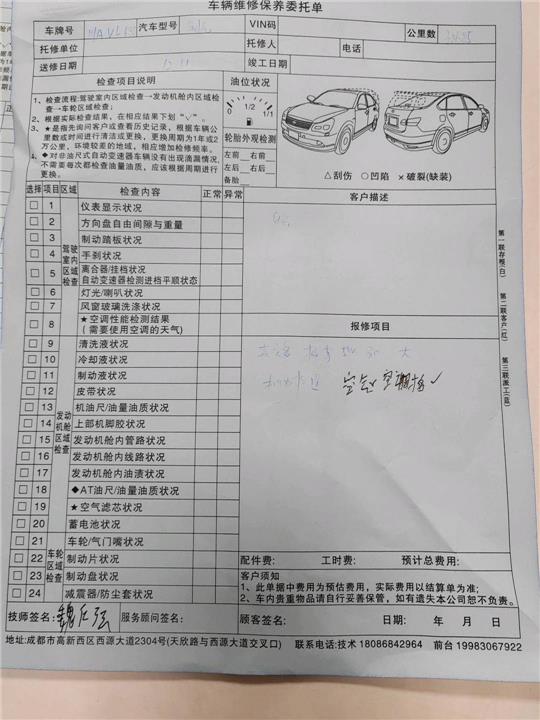 车辆维修保养委托单
车牌号 汽车型号 VIN码 公里数
托修单位 托修人 电话
送修日期 竣工日期
检查项目说明
1、检查流程:驾驶室内区域检查→发动机舱内区域检查→车轮区域检查;
2、根据实际检查结果,在相应结果下划“√”。
3、★是指先询问客户或查看历史记录,根据车辆公里数或时间进行清洁或更换,更换周期为1年或2万公里,环境较差的地域,相应增加检修频率。
4、◆对非油尺式自动变速器车辆没有出现滴漏情况,不需要每次都检查油量油质,应该根据周期进行更换。
油位状况
0 1/2 1/1
轮胎外观检测
左前 右前
左后 右后
备胎
△刮伤 ○凹陷 ×破裂(缺装)
选择 项目 区域 检查内容 正常 异常
驾驶室内区域检查
□ 1 仪表显示状况
□ 2 方向盘自由间隙与重量
□ 3 制动踏板状况
□ 4 手刹状况
□ 5 离合器/挂档状况
自动变速器检测进档平顺状态
□ 6 灯光/喇叭状况
□ 7 风窗玻璃洗涤状况
□ 8 ★空调性能检测结果
(需要使用空调的天气)
发动机舱区域检查
□ 9 清洗液状况
□ 10 冷却液状况
□ 11 制动液状况
□ 12 皮带状况
□ 13 机油尺/油量油质状况
□ 14 上部机脚胶状况
□ 15 发动机舱内管路状况
□ 16 发动机舱内线路状况
□ 17 发动机舱内油渍状况
□ 18 ◆AT油尺/油量油质状况
□ 19 ★空气滤芯状况
□ 20 蓄电池状况
车轮区域检查
□ 21 车轮/气门嘴状况
□ 22 制动片状况
□ 23 制动盘状况
□ 24 减震器/防尘套状况
客户描述
报修项目
第一联存根(白)
第二联客户(红)
第三联派工(蓝)
配件费: 工时费: 预计总费用:
客户须知
1、此单据中费用为预估费用,实际费用以结算单为准;
2、车内贵重物品请自行妥善保管,如有遗失本公司恕不负责。
技师签名: 服务顾问签名: 顾客签名: 日期: 年 月 日
地址:成都市高新西区西源大道2304号(天欣路与西源大道交叉口) 联系电话:技术 18086842964 前台 19983067922